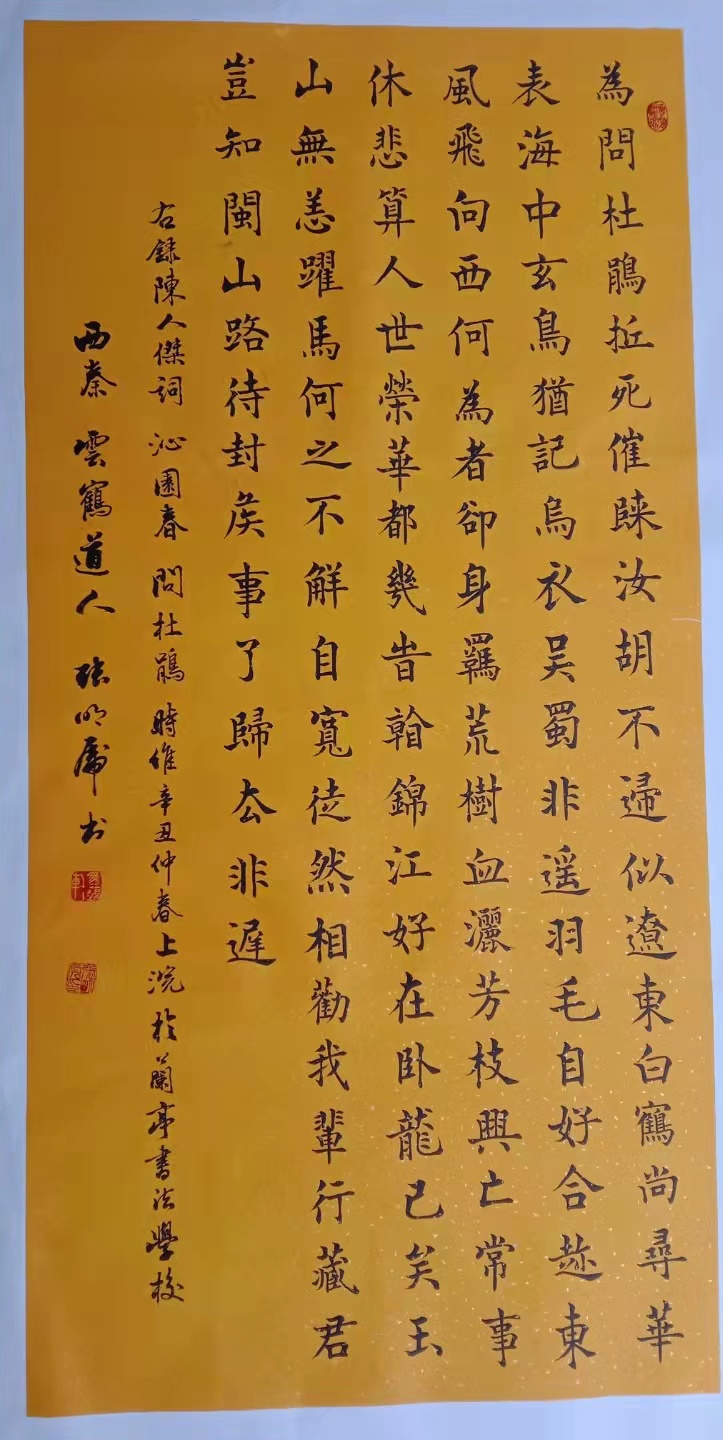 為問杜鵑抵死催歸汝胡不歸似遼東白鶴尚尋華
表海中玄鳥猶記烏衣吴蜀非遥羽毛自好合趂東
風飛向西何為者卻身羈荒樹血灑芳枝興亡常事
休悲算人世榮華都幾时看錦江好在卧龍已矣玉
山無恙躍馬何之不解自寬徒然相勸我輩行藏君
豈知閩山路待封侯事了歸去非遲
右録陳人傑詞沁園春問杜鵑時維辛丑仲春上浣於蘭亭書法學校
西秦雲鶴道人張明虎书